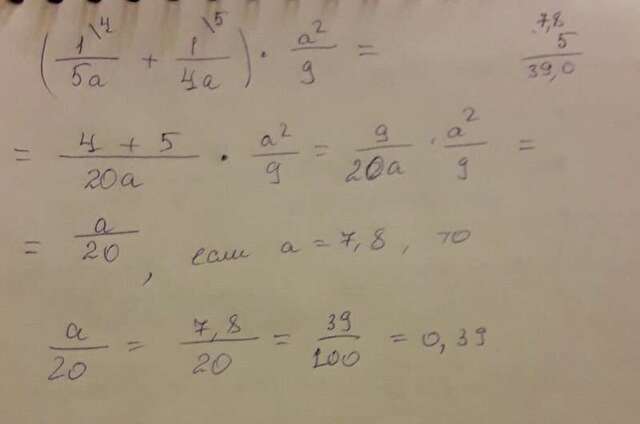 (1\4/5a + 1\5/4a) · a²/9 =
7,8
5
39,0
= 4 + 5/20a · a²/9 = 9/20a · a²/9 =
= a/20, если a = 7,8, то
a/20 = 7,8/20 = 39/100 = 0,39